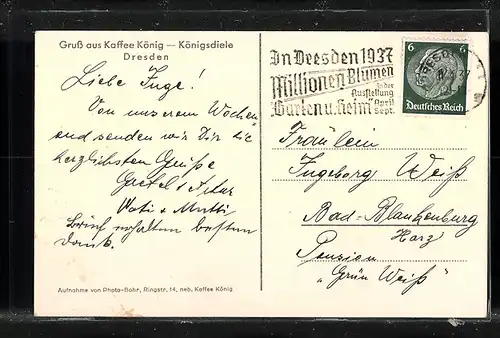 Gruß aus Kaffee König — Königsdiele
Dresden
Liebe Inge!
Von unserem Wochen-
end senden wir Dir die
herzlichsten Grüße
Gretel + Peter
Vati + Mutti
Brief erhalten besten
Dank.
Aufnahme von Photo-Bohr, Ringstr. 14, neb. Kaffee König
In Dresden 1937
Millionen Blumen
in der
Ausstellung
Garten u. Heim April
Sept.
6 6
Deutsches Reich
Fräulein
Ingeborg Weiß
Bad-Blankenburg
Harz
Pension
„Grün Weiß"